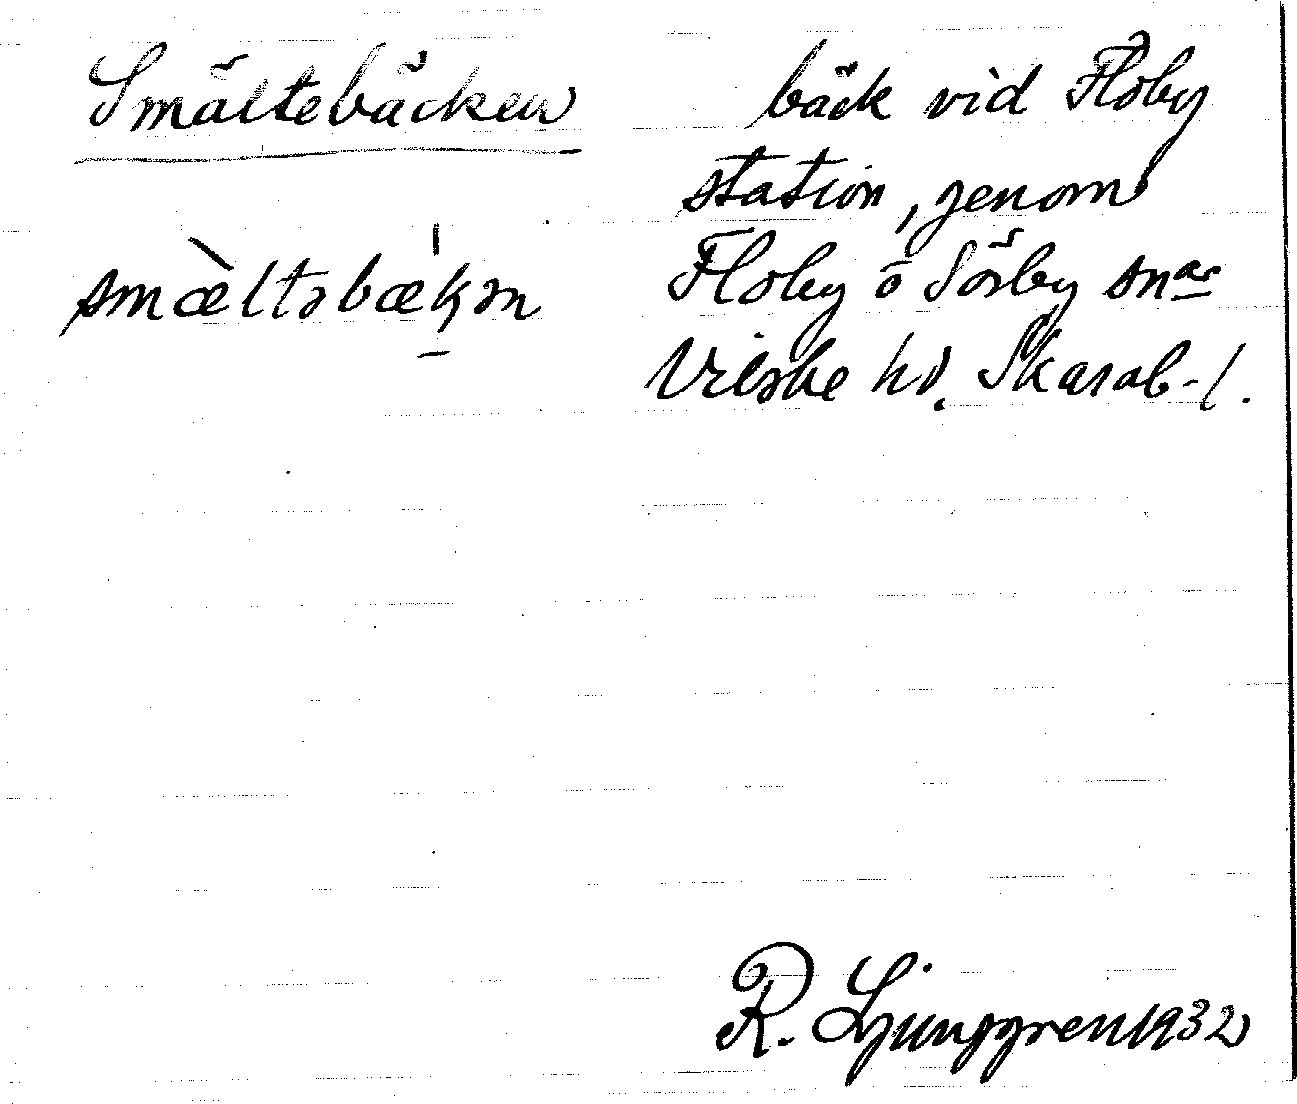 Smältebäcken
smæ̀ltəbæ̍kən
bäck vid Floby
station, genom
Floby o Sörby snar
Vilske hd. Skarab. l.
R. Ljunggren 1932